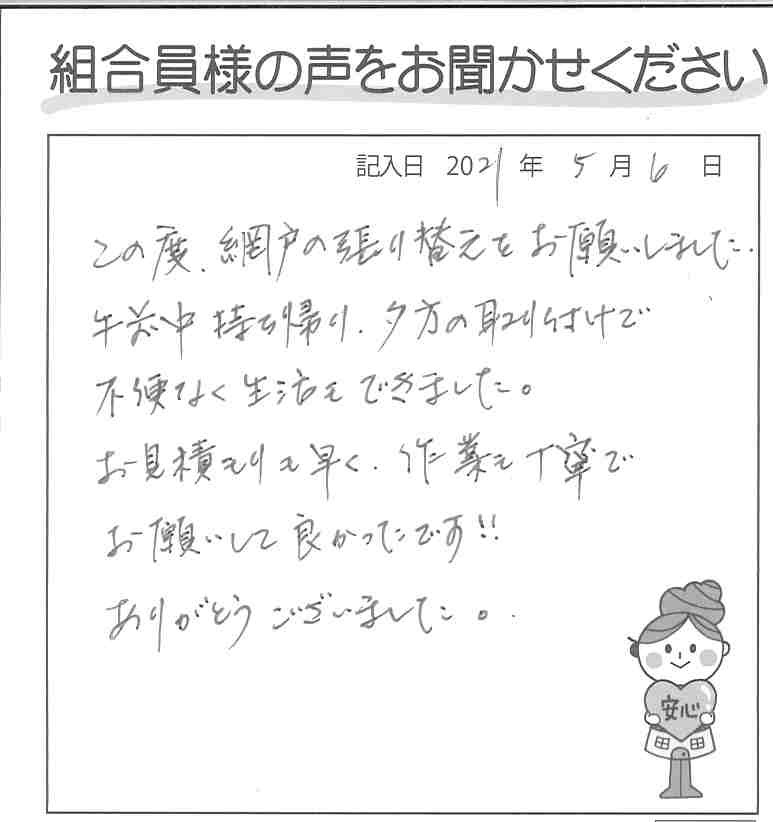 組合員様の声をお聞かせください
記入日 2021年 5月 6日
この度、網戸の張り替えをお願いしました.
午前中持ち帰り、夕方の取り付けで
不便なく生活もできました。
お見積もりも早く、作業も丁寧で
お願いして良かったです!!
ありがとうございました。
安心